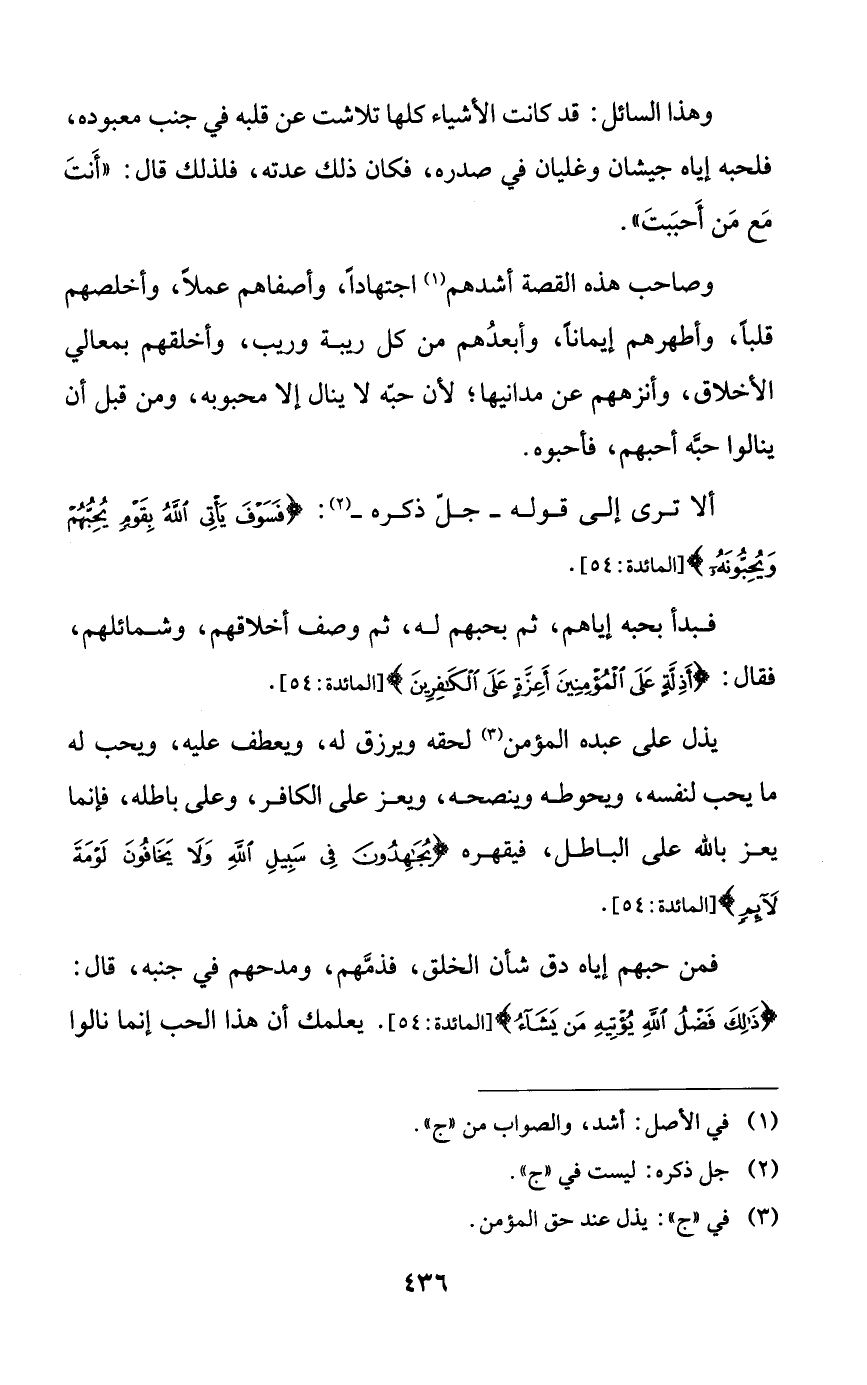 وهذا السائل: قد كانت الأشياء كلها تلاشت عن قلبه في جنب معبوده،
فلحبه إياه جيشان وغليان في صدره، فكان ذلك عدته، فلذلك قال: «أَنتَ
مَع مَن أَحبَبتَ».
وصاحب هذه القصة أشدهم(١) اجتهاداً، وأصفاهم عملاً، وأخلصهم
قلباً، وأطهرهم إيماناً، وأبعدُهم من كل ريبة وريب، وأخلقهم بمعالي
الأخلاق، وأنزههم عن مدانيها؛ لأن حبّه لا ينال إلا محبوبه، ومن قبل أن
ينالوا حبَّه أحبهم، فأحبوه.
ألا ترى إلى قوله - جلّ ذكره -(٢): ﴿فَسَوْفَ يَأْتِى ٱللَّهُ بِقَوْمٍ يُحِبُّهُمْ
وَيُحِبُّونَهُۥ﴾[المائدة: ٥٤].
فبدأ بحبه إياهم، ثم بحبهم له، ثم وصف أخلاقهم، وشمائلهم،
فقال: ﴿أَذِلَّةٍ عَلَى ٱلْمُؤْمِنِينَ أَعِزَّةٍ عَلَى ٱلْكَٰفِرِينَ﴾[المائدة: ٥٤].
يذل على عبده المؤمن(٣) لحقه ويرزق له، ويعطف عليه، ويحب له
ما يحب لنفسه، ويحوطه وينصحه، ويعز على الكافر، وعلى باطله، فإنما
يعز بالله على الباطل، فيقهره ﴿يُجَٰهِدُونَ فِى سَبِيلِ ٱللَّهِ وَلَا يَخَافُونَ لَوْمَةَ
لَآئِمٍ﴾[المائدة: ٥٤].
فمن حبهم إياه دق شأن الخلق، فذمَّهم، ومدحهم في جنبه، قال:
﴿ذَٰلِكَ فَضْلُ ٱللَّهِ يُؤْتِيهِ مَن يَشَآءُ﴾[المائدة: ٥٤]. يعلمك أن هذا الحب إنما نالوا
(١) في الأصل: أشد، والصواب من «ج».
(٢) جل ذكره: ليست في «ج».
(٣) في «ج»: يذل عند حق المؤمن.
٤٣٦